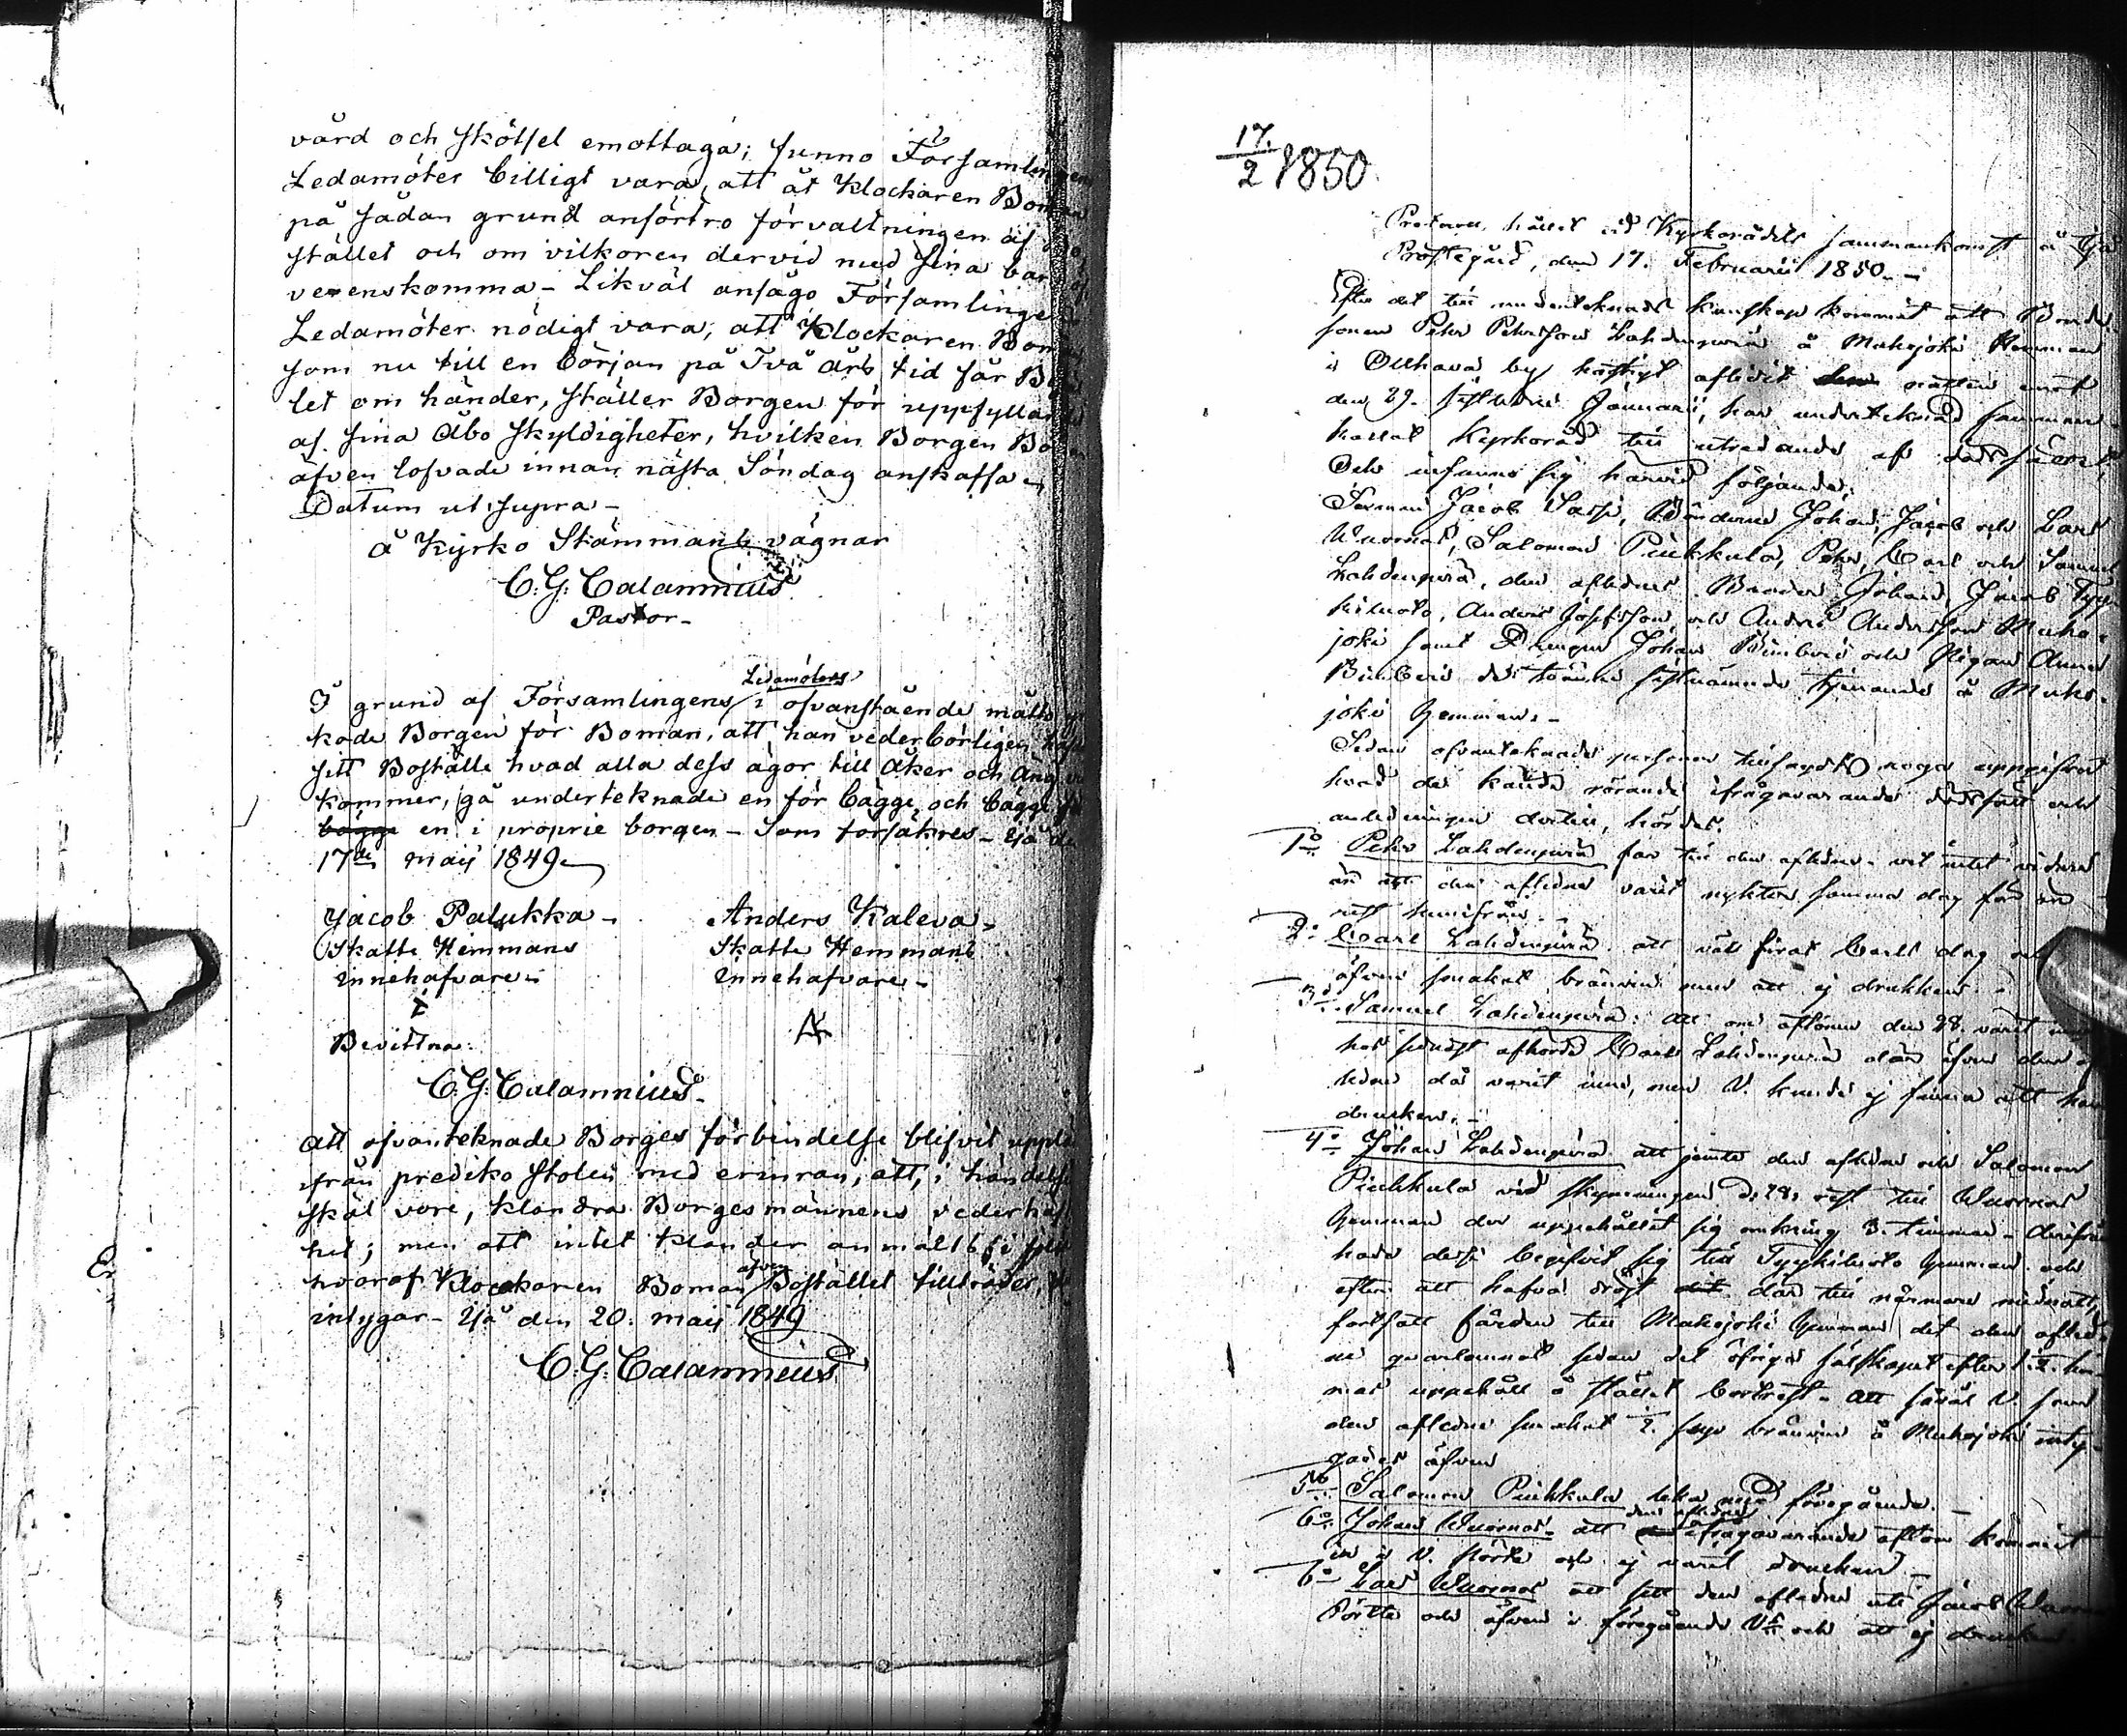 vård och skötsel emottaga; funno Församlingen
Ledamöter billigt vara, att åt Klockaren Boman
på sådan grund anförtro förvaltningen af
stället och om vilkoren dervid med sina
verenskomma - Likväl ansågo Församlinge
Ledamöter nödigt vara, att Klockaren Bom
som nu till en början på Två års tid får Bo
let om händer, ställer Borgen för uppfyllan
af sina Åbo skyldigheter, hvilken Borgen Bo
äfven lofvade innan nästa Söndag anskaffa
Datum ut supra -
å Kyrko Stämmans vägnar
C. G. Calamnius
Pastor -
Ledamöters
I grund af Församlingens i ofvanstående måtto
kade Borgen för Boman, att han vederbörligen
sitt Boställe hvad alla dess ägor till Åker och Äng
kommer, gå underteknade en för bägge och bägge
bägge en i proprie borgen - Som försäkres - Ijå
17de maij 1849
Jacob Palukka - Anders Kaleva -
Skatte Hemmans Skatte Hemmans
innehafvare - innehafvare -
Bevittna:
C. G. Calamnius -
Att ofvanteknade Borges förbindelse blifvit uppl
ifrån prediko stolen med erinran, att, i händelse
skäl vore, klandra Borgesmännens vederhäf
het; men att intet klander anmälts
äfven
hvaraf Klockaren Boman Bostället tillträdet,
intygar - Ijå den 20. maij 1849
C. G. Calamnius
17./2 1850
hållet vid Kyrkorådets sammankomst å Ijå
Prästegård, den 17. Februarii 1850. -
Efter det till undertecknads kunskap kommit att Bonde
sonen Pehr Pehrsson Lahdenperä å Muhojoki Hemman
i Ollhava by hastigt aflidit natten emot
den 29. sistledne Januarii, har undertecknad samman-
kallat Kyrkoråd till utredande af dödssättet,
Och infunno sig härvid följande:
Sexman Jacob Sassi, Bönderne Johan, Jacob och Lars
Wuornos, Salomon Piukkula, Pehr, Carl och Samuel
Lahdenperä, den aflidnes Broder Johan, Jacob
Anders Josefsson, och Anders Andersson Muho-
joki samt Drengen Johan och Pigan Anna
sistnämnde tjenande å Muho-
joki Hemman. -
Sedan ofvanteknade personer tillsagts noga uppgifva
hvad de kände rörande ifrågavarande dödssätt och
anledningen dertill, hördes:
1o Pehr Lahdenperä far till den aflidne - vet intet vidare
än att den aflidne varit nykter samma dag han
rest hemifrån. -
2o Carl Lahdenperä att firat Carls dag och
äfven smakat bränvin men att ej drukken. -
3o Samuel Lahdenperä: att om aftonen den 28. varit
hos sednast afhörde Carl Lahdenperä där äfven den af-
lidne då varit inne, men V. kunde ej finna att han
drucken. -
4o Johan Lahdenperä att jemte den aflidne och Salomon
Piukkula vid skymningen d. 28. rest till Wuornos
Hemman der uppehållit sig omkring 3. timmar - derifrån
hade desse begifvit sig till Hemman och
efter att hafva dröjt där till närmare midnatt,
fortsatt färden till Muhojoki Hemman det den aflid-
ne qvarlemnat sedan det öfriga sällskapet efter
uppehåll å stället bortrest - Att såväl V. som
den aflidne smakat 2. sup bränvin å Muhojoki inty-
gades äfven
5o Salomon Piukkula lika med föregående. -
den aflidne
6o Johan Wuornos - att ifrågavarande afton kommit
in i V. pörte och ej varit drucken -
6o Lars Wuornos att sett den aflidne uti Jacob
Pörtte och äfven i föregående Vs och att ej drucken.